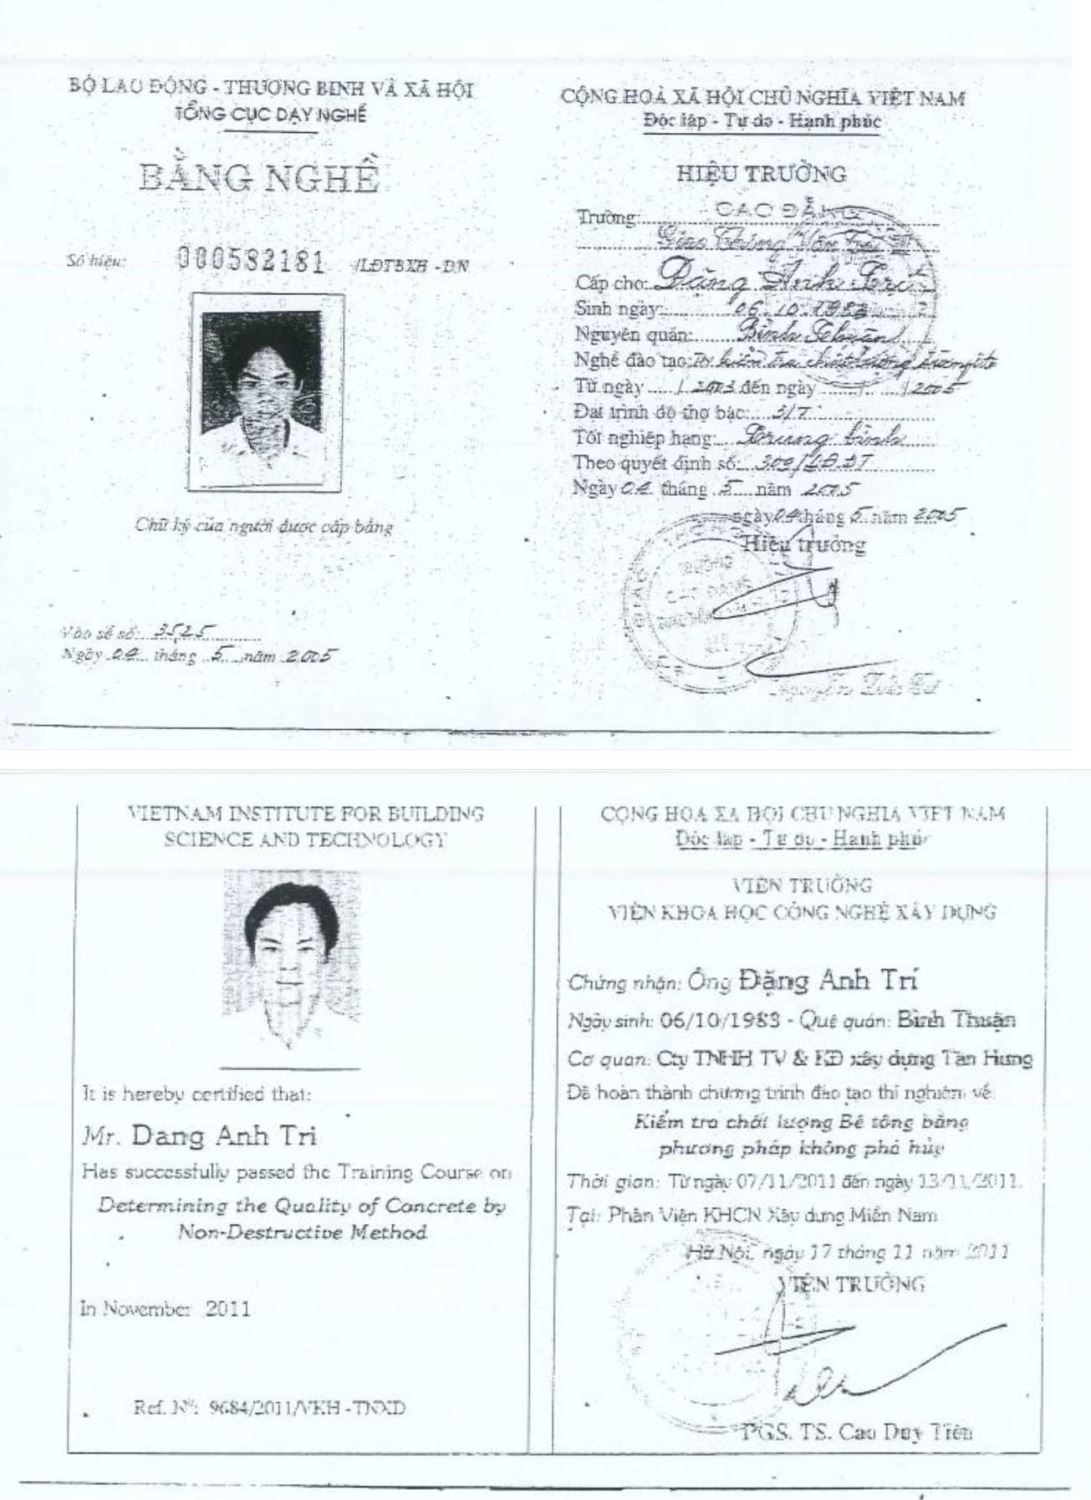 BỘ LAO ĐỘNG - THƯƠNG BINH VÀ XÃ HỘI
TỔNG CỤC DẠY NGHỀ
BẰNG NGHỀ
Số hiệu: 000582181 /LĐTBXH - DN
Chữ ký của người được cấp bằng
Vào sổ số: 3525
Ngày 04 tháng 5 năm 2005
CỘNG HOÀ XÃ HỘI CHỦ NGHĨA VIỆT NAM
Độc lập - Tự do - Hạnh phúc
HIỆU TRƯỞNG
Trường: CAO ĐẲNG
Giao Thông Vận Tải III
Cấp cho: Đặng Anh Trí
Sinh ngày: 06.10.1983
Nguyên quán: Bình Thuận
Nghề đào tạo: kiểm tra chất lượng
Từ ngày / 2003 đến ngày / 2005
Đạt trình độ thợ bậc: 3/7
Tốt nghiệp hạng: Trung bình
Theo quyết định số: 309/
Ngày 04 tháng 5 năm 2005
ngày 04 tháng 5 năm 2005
Hiệu trưởng
TRƯỜNG
CAO ĐẲNG
Nguyễn
VIETNAM INSTITUTE FOR BUILDING
SCIENCE AND TECHNOLOGY
It is hereby certified that:
Mr. Dang Anh Tri
Has successfully passed the Training Course on
Determining the Quality of Concrete by
Non-Destructive Method
In November 2011
Ref. Nº: 9684/2011/VKH - TNXD
CỘNG HOÀ XÃ HỘI CHỦ NGHĨA VIỆT NAM
Độc lập - Tự do - Hạnh phúc
VIỆN TRƯỞNG
VIỆN KHOA HỌC CÔNG NGHỆ XÂY DỰNG
Chứng nhận: Ông Đặng Anh Trí
Ngày sinh: 06/10/1983 - Quê quán: Bình Thuận
Cơ quan: Cty TNHH TV & KĐ xây dựng Tân Hưng
Đã hoàn thành chương trình đào tạo thí nghiệm về:
Kiểm tra chất lượng Bê tông bằng
phương pháp không phá hủy
Thời gian: Từ ngày 07/11/2011 đến ngày 13/11/2011.
Tại: Phân Viện KHCN Xây dựng Miền Nam
Hà Nội, ngày 17 tháng 11 năm 2011
VIỆN TRƯỞNG
PGS. TS. Cao Duy Tiến